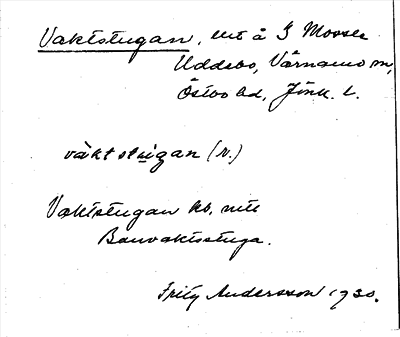 Vaktstugan, ent å S Mosse
Uddebo, Värnamo m,
Östbo hd, Jönk. l.
vàkt stúgan (v.)
Vaktstugan kb. nitt
Banvaktsstuga.
Fritz Andersson 1930.